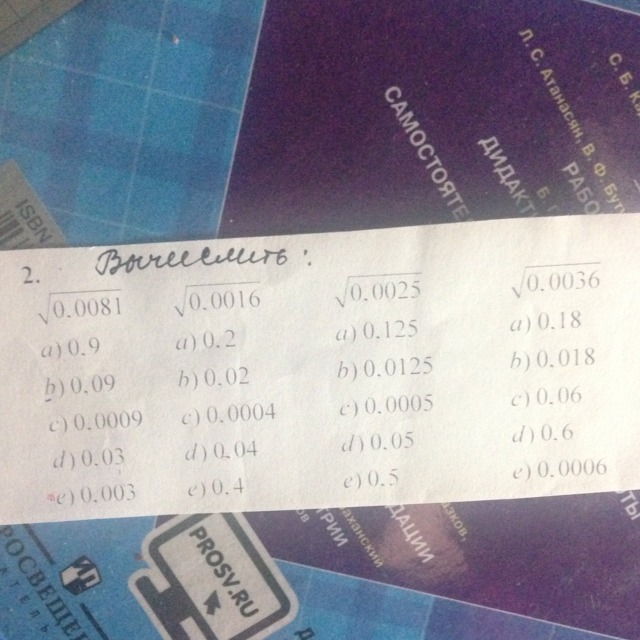 Л.С. Атанасян, В.Ф.
САМОСТОЯТЕ
ДИДАКТ
ISBN
2. Вычислить:
√0.0081 √0.0016 √0.0025 √0.0036
a) 0.9 a) 0.2 a) 0.125 a) 0.18
b) 0.09 b) 0.02 b) 0.0125 b) 0.018
c) 0.0009 c) 0.0004 c) 0.0005 c) 0.06
d) 0.03 d) 0.04 d) 0.05 d) 0.6
e) 0.003 e) 0.4 e) 0.5 e) 0.0006
РОСВЕЩЕН
PROSV.RU